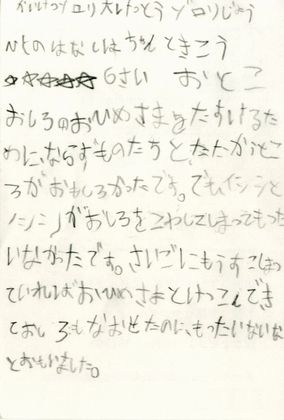 かいけつゾロリ 大けっとう ゾロリじょう
ひとのはなしはちゃんときこう
6さい おとこ
おしろのおひめさまをたすけるた
めに、ならずものたちと、たたかうとこ
ろがおもしろかったです。でも、イシシと
ノシシがおしろをこわしてしまってもった
いなかったです。さいごにもうすこしまっ
ていればおひめさまとけっこんでき
ておしろもなおせたのに、もったいないな
とおもいました。